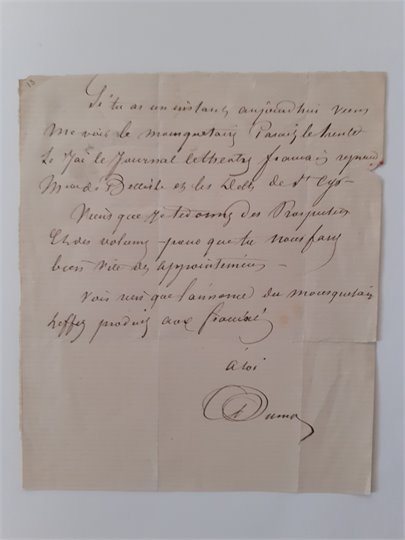 Si tu as un instant aujourd'hui viens
me voir le mousquetaire Parait le
Le Journal le theatre français reprend
Melle de Belleisle et les Delles de St Cyr
Viens que je te donne des Prospectus
Et des volumes pour que tu nous fasses
bien vite des appointements
Vois vieux que l'annonce du mousquetaire
l'effet produit aux français
A toi
ADumas